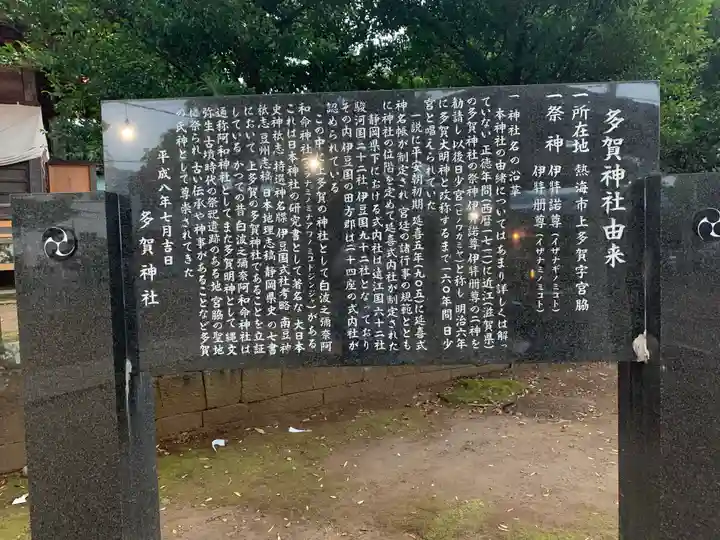 多賀神社由来
一所在地 熱海市上多賀字宮脇
一祭神 伊弉諾尊(イザナギノミコト)
伊弉册尊(イザナミノミコト)
一神社名の沿革
本神社の由緒についてはあまり詳しくは解っ
ていない 正徳年間(西暦一七一二)に近江(滋賀県)
の多賀神社の祭神 伊弉諾尊 伊弉册尊の二神を
勧請し 以後日少宮(ヒノワカミヤ)と称し 明治六年
に多賀大明神と改称するまで 一六〇年間 日少
宮と唱えられていた
一説に平安朝初期 延喜五年(九〇五)に延喜式
神名帳が制定され 宮廷の諸行事の規範ととも
に神社の位階を定めて延喜式内社が制定された
静岡県下における式内社は 遠江国六十二社
駿河国二十二社 伊豆国九十二社となっており
その内伊豆国の田方郡は二十四座の式内社が
認められている
この中の上多賀の神社として 白波之彌奈阿
和命神社(シラナミノミナアワノミコトジンジャ)がある
これは日本神社の研究書として著名な 大日本
史神祇志 特選神名牒 伊豆国式社考略 南豆神
祇志 豆州志稿 日本地理志稿 静岡県史の七書
において 上多賀の多賀神社であることを立証
している かつての昔 白波之彌奈阿和命神社は
通称阿和神社として また多賀明神として 縄文
弥生古墳時代の祭祀遺跡のある地 宮脇の聖地
に祭られ 古い伝承や神事があることなど 多賀
の氏神として尊崇されてきた
平成八年七月吉日
多賀神社